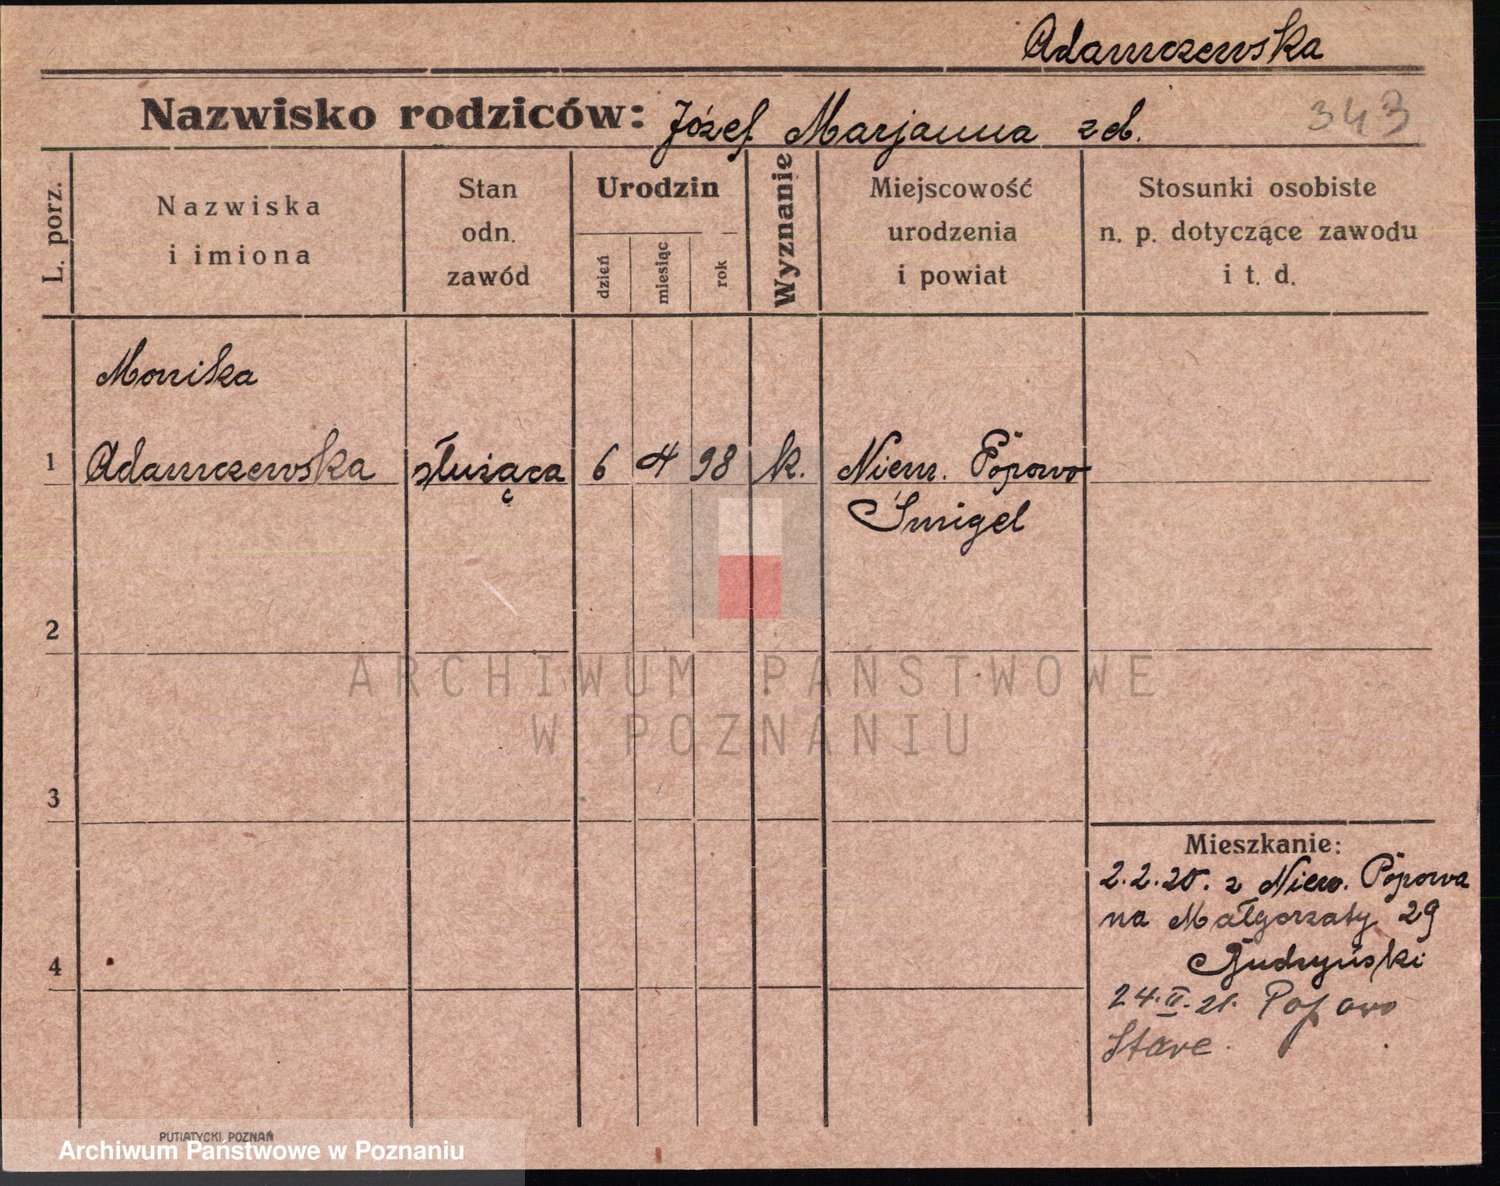 Adamczewska
Nazwisko rodziców: Józef Marjanna zd. 343
L. porz.
Nazwiska
i imiona
Stan
odn.
zawód
Urodzin
dzień
miesiąc
rok
Wyznanie
Miejscowość
urodzenia
i powiat
Stosunki osobiste
n. p. dotyczące zawodu
i t. d.
Monika
1 Adamczewska służąca 6 4 98 k. Niem. Popowo
Śmigel
2
ARCHIWUM PAŃSTWOWE
W POZNANIU
3
Mieszkanie:
2.2.20. z Niem. Popowa
na Małgorzaty 29
Budzyński
4
24.II.21. Popowo
Stare.
PUTIATYCKI POZNAŃ
Archiwum Państwowe w Poznaniu